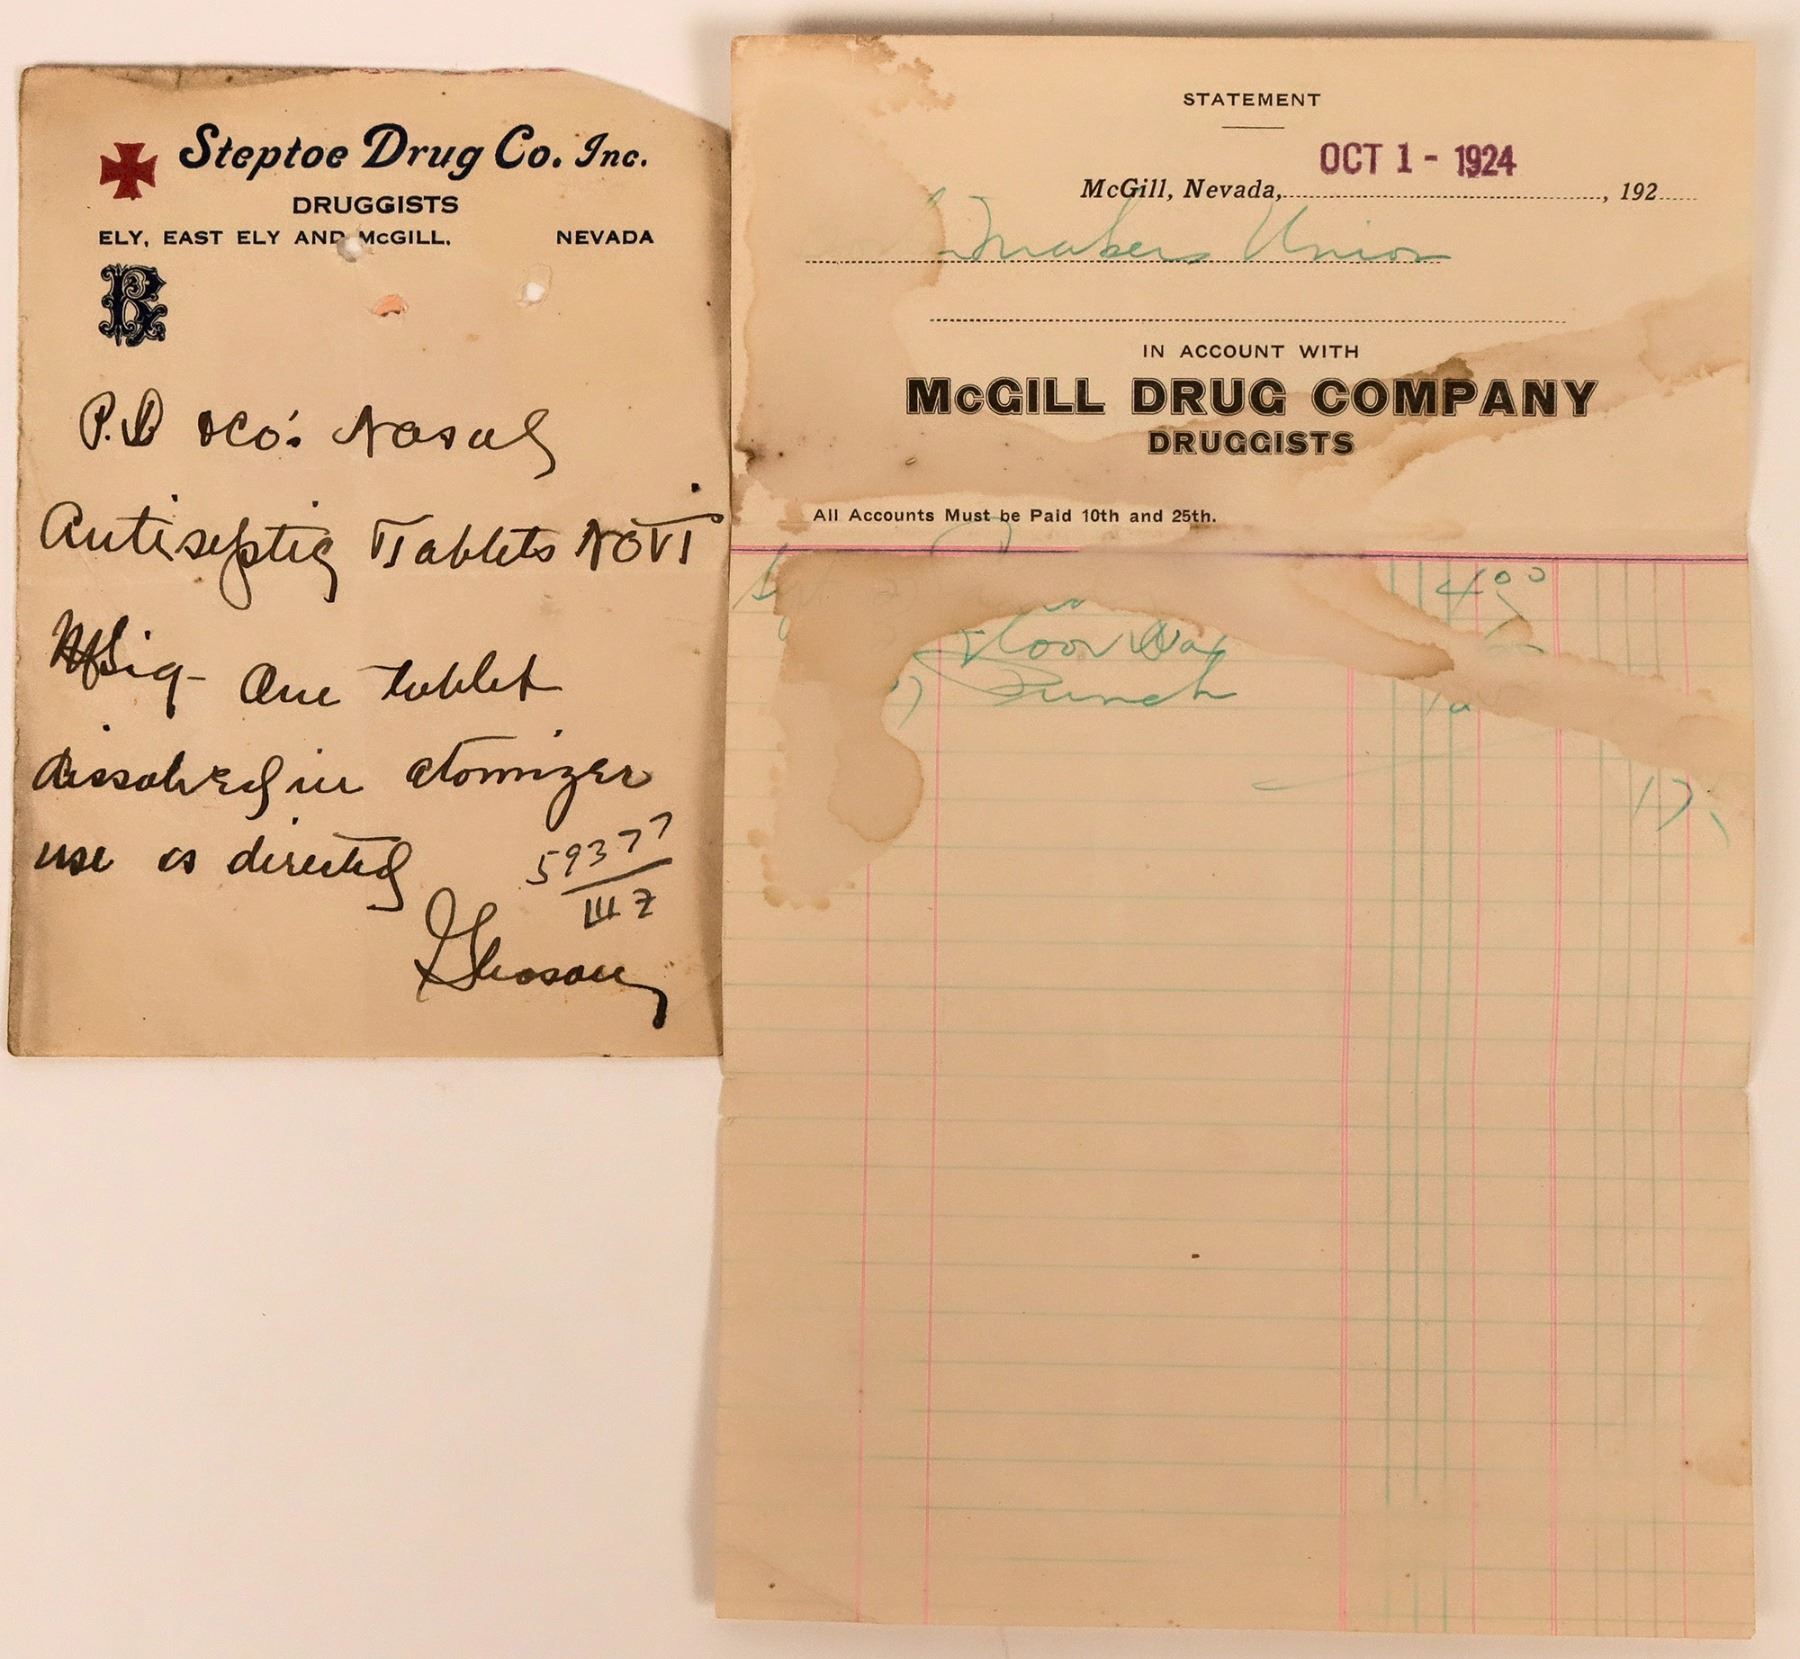 Steptoe Drug Co. Inc.
DRUGGISTS
ELY, EAST ELY AND McGILL, NEVADA
℞
P.D &Co's Nasal
Antiseptic Tablets No VI
Sig- One tablet
dissolved in atomizer
use as directed
59377
III Z
STATEMENT
OCT 1 - 1924
McGill, Nevada, , 192
makers Union
IN ACCOUNT WITH
McGILL DRUG COMPANY
DRUGGISTS
All Accounts Must be Paid 10th and 25th.
4 00
Floor Wax
Punch